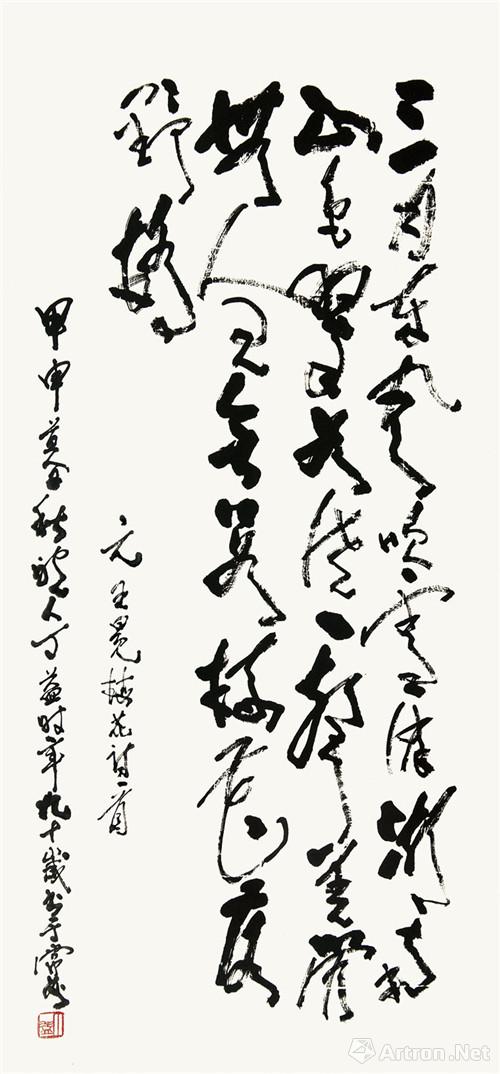 三月東風吹雪消湖南
山色翠如澆一聲羌管
無人見無數梅花落
野橋
元王冕梅花詩一首
甲申秋人丁益時年九十歲書于
Artron.Net